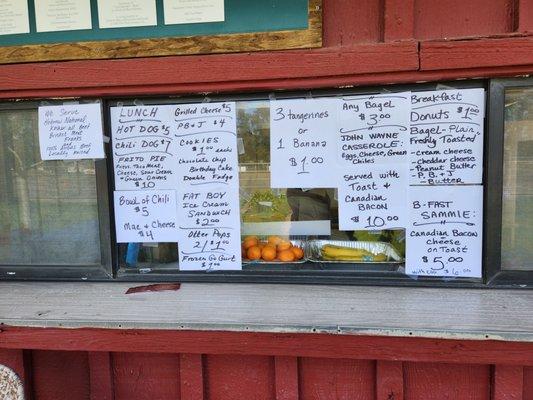 We Serve
Hebrew National
Kosher all Beef
Franks
LUNCH
HOT DOG $5
CHILI DOG $7
FRITO PIE
$10
Bowl of Chili
$5
Mac & Cheese
$4
Grilled Cheese $5
PB & J $4
Cookies
$1.00 each
Chocolate Chip
Birthday Cake
Double Fudge
FAT BOY
Ice Cream
SANDWICH
$2.00
Otter Pops
2/$1.00
Frozen Go Gurt
$1.00
3 tangerines
or
1 Banana
$1.00
Any Bagel
$3.00
JOHN WAYNE
CASSEROLE:
Eggs, Cheese, Green
Chiles
served with
Toast &
Canadian
BACON
$10.00
Breakfast
Donuts $1.00
Bagel - Plain
Freshly Toasted
- cream cheese
- cheddar cheese
- Peanut Butter
- P, B, & J
- Butter
B-FAST
SAMMIE:
Canadian Bacon
Cheese
on Toast
$5.00